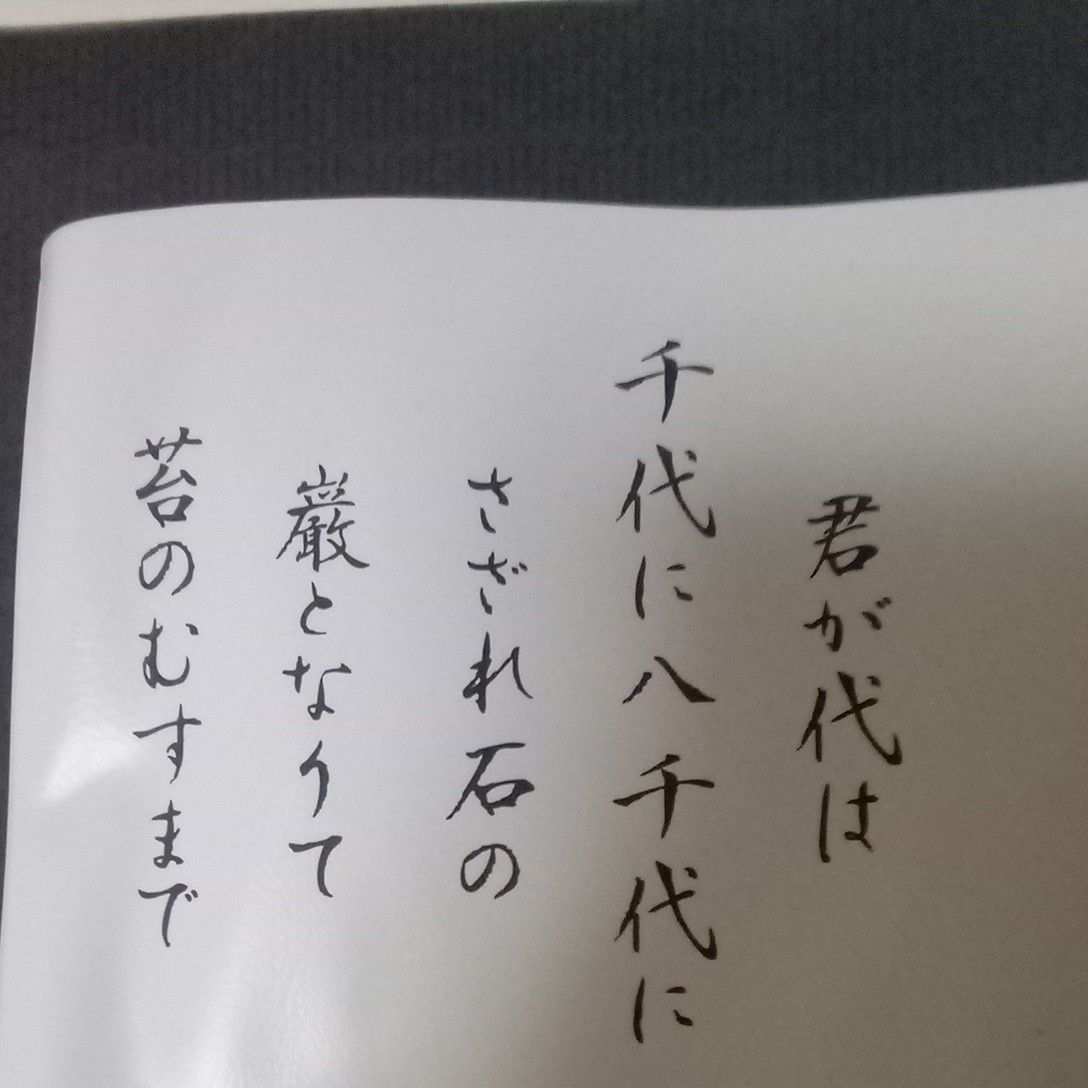 君が代は
千代に八千代に
さざれ石の
巌となりて
苔のむすまで